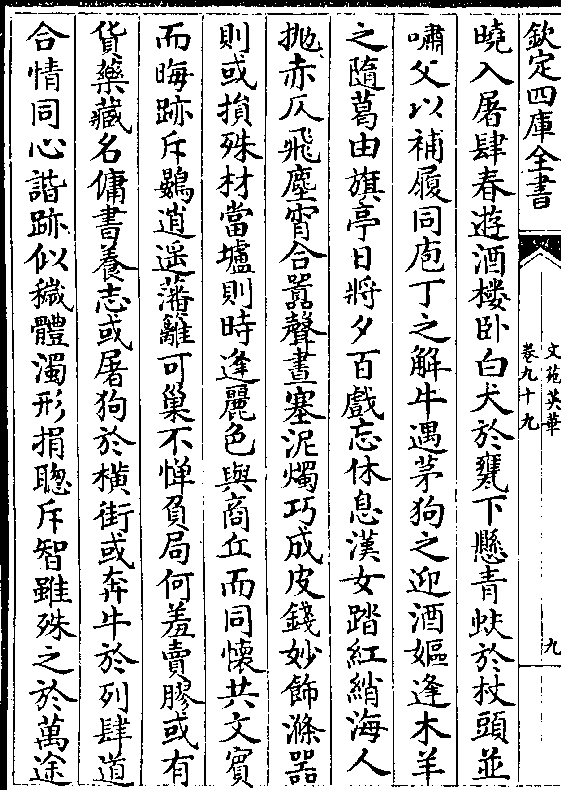 欽定四庫全書
文苑英華
卷九十九
九
曉入屠肆春遊酒樓臥白犬於甕下懸青蚨於杖頭並
嘯父以補履同庖丁之解牛遇茅狗之迎酒嫗逢木羊
之隨葛由旗亭日將夕百戲忘休息漢女踏紅綃海人
拋赤仄飛塵宵合囂聲晝塞泥燭巧成皮錢妙飾滌器
則或損殊材當壚則時逢麗色與商丘而同懷共文賓
而晦跡斥鷃逍遥藩籬可巢不憚負局何羞賣膠或有
貨藥藏名傭書養志或屠狗於橫街或奔牛於列肆道
合情同心諧跡似穢體濁形捐聰斥智雖殊之於萬途